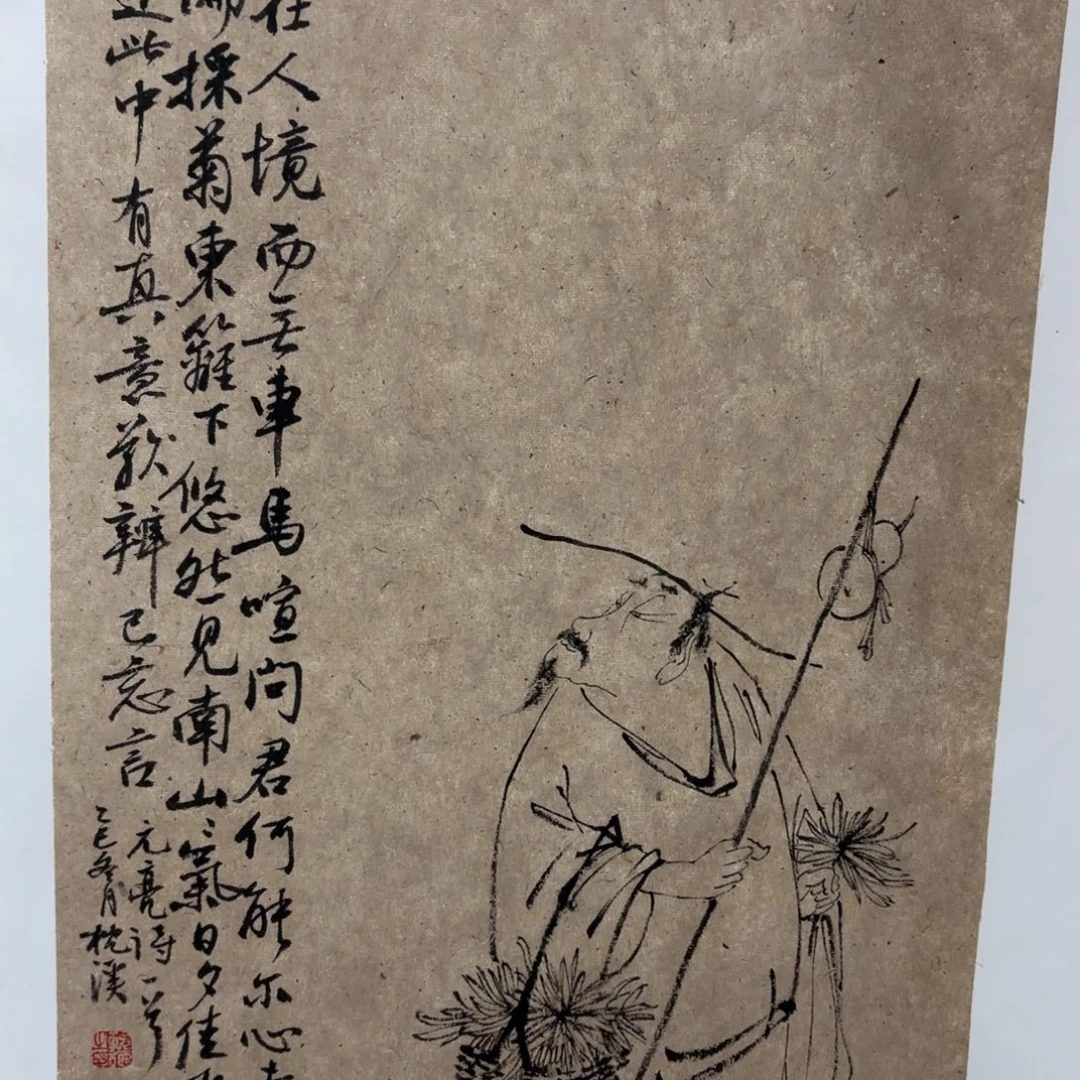 在人境而无車馬喧問君何能尔心
偏採菊東籬下悠然見南山〻氣日夕佳
此中有真意欲辨已忘言
元亮诗一首
乙巳冬月枕溪